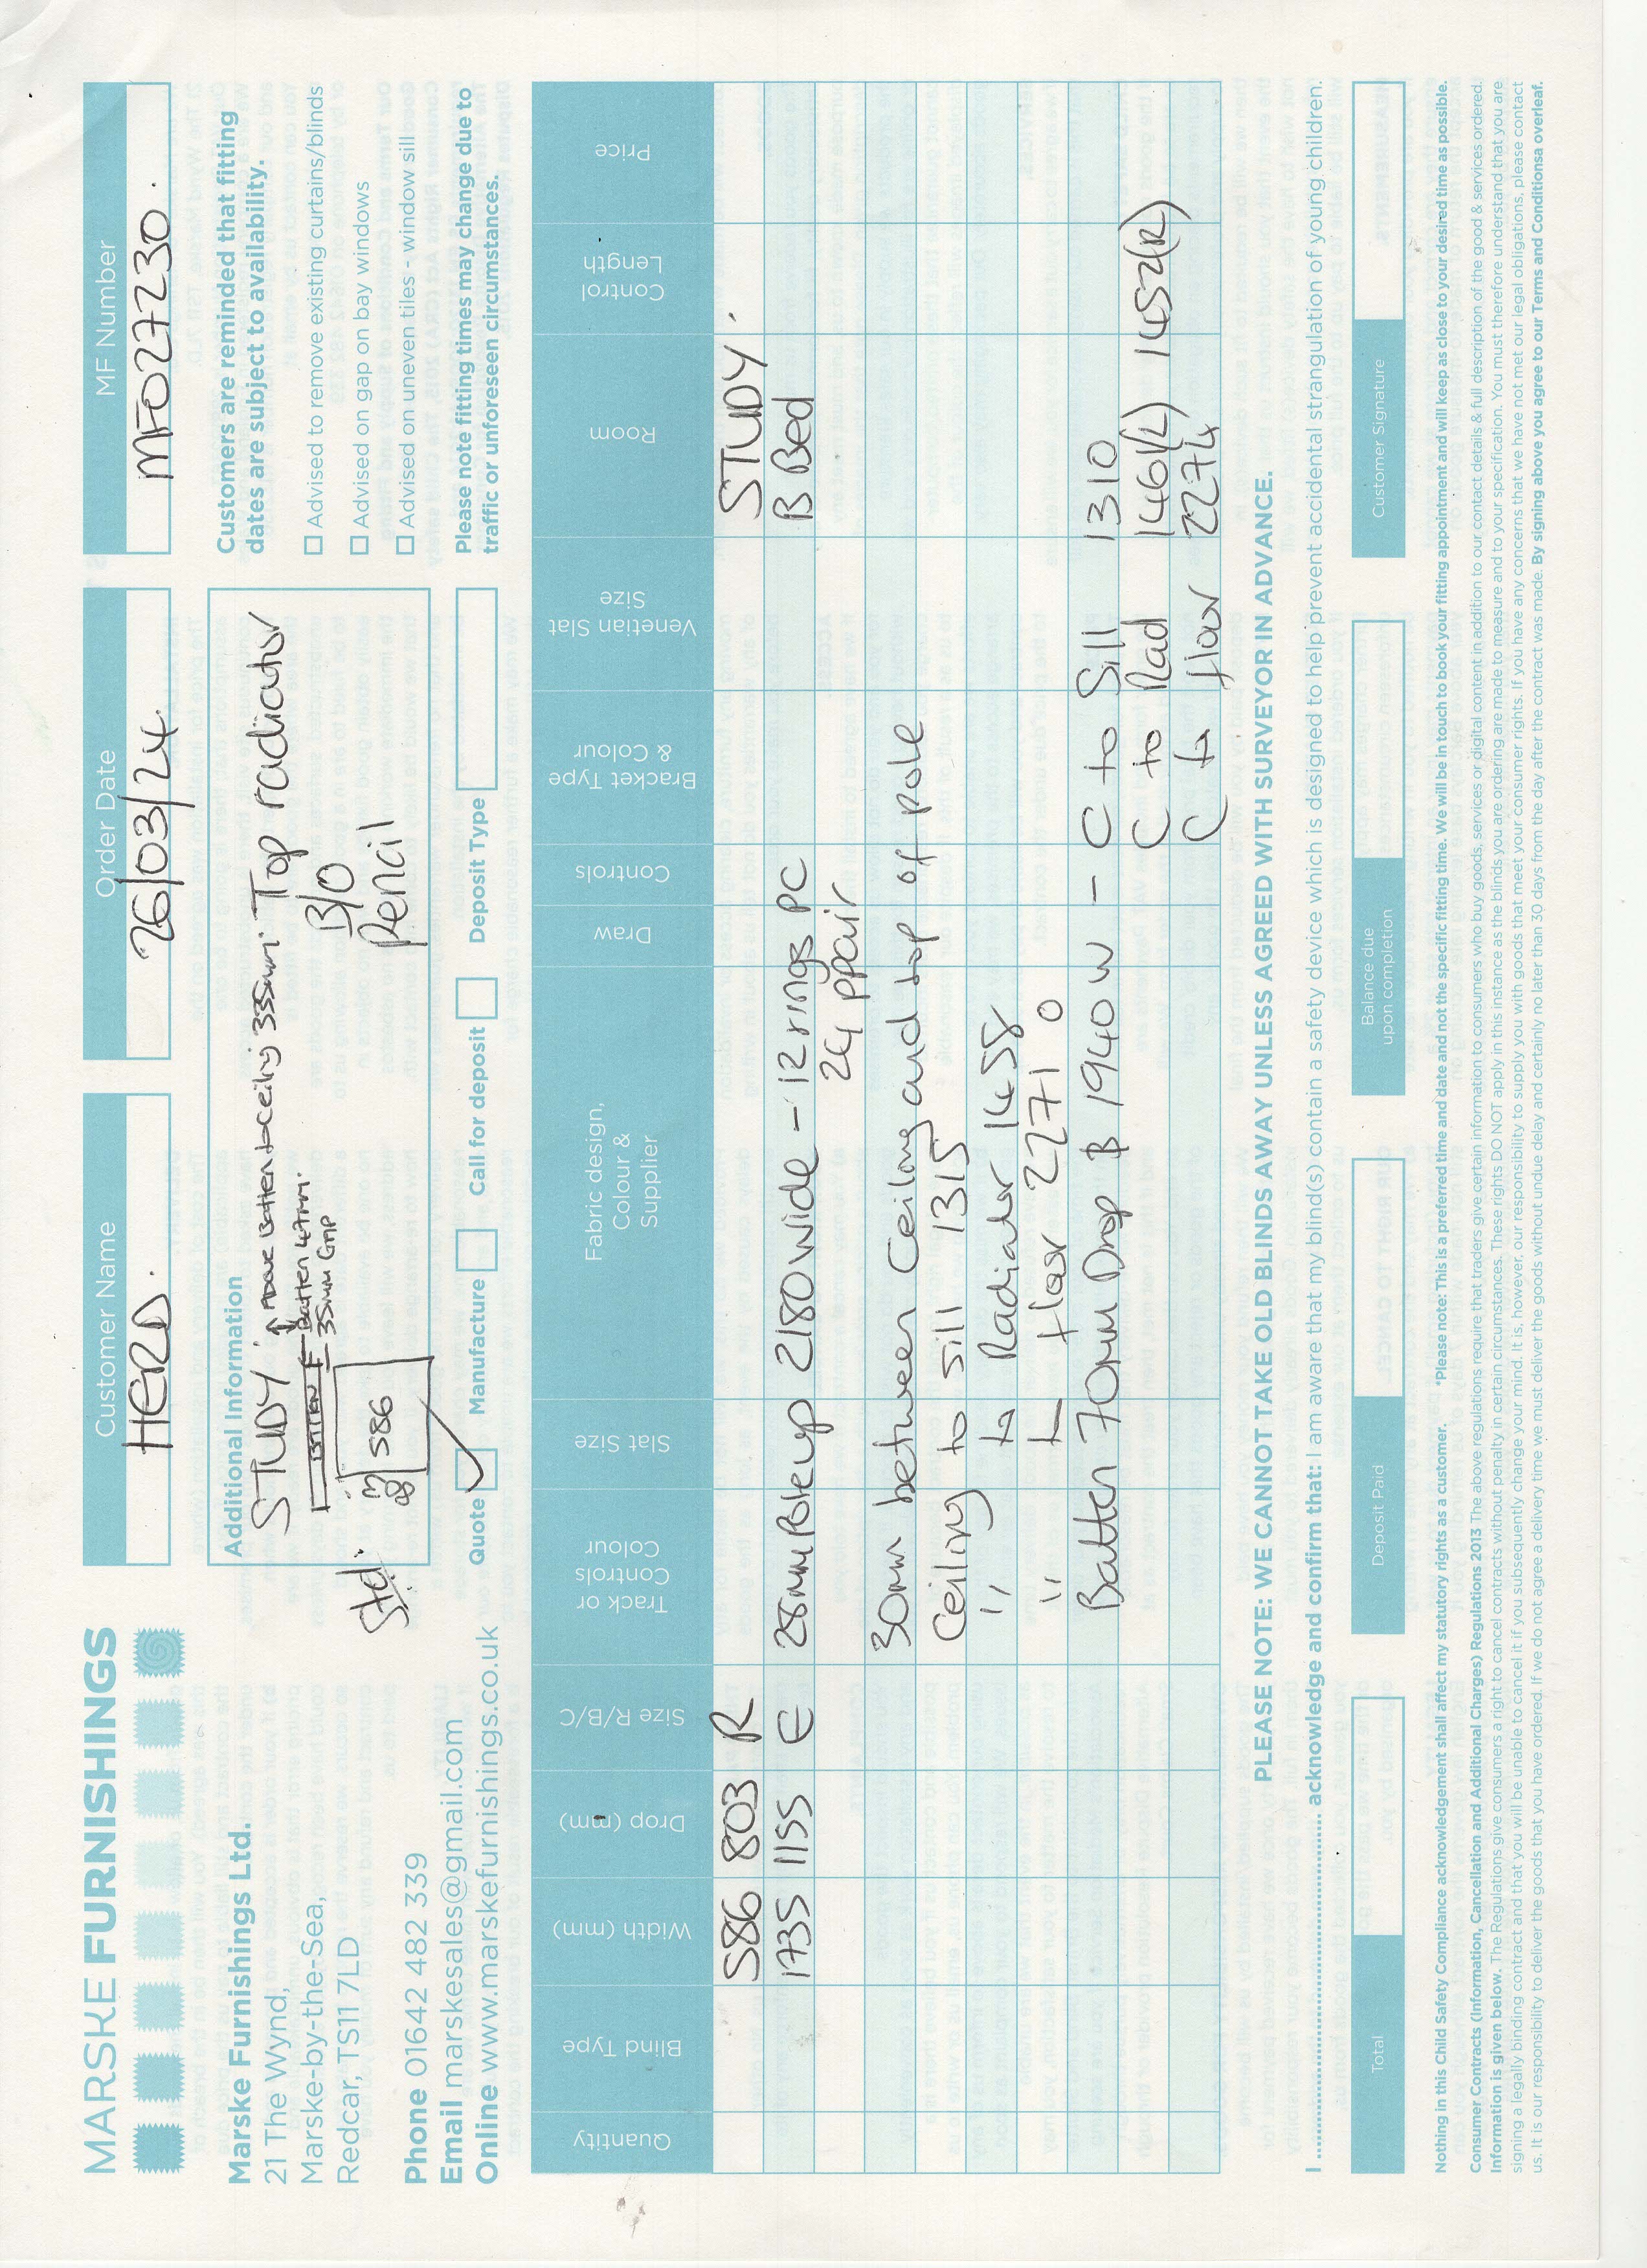 MARSKE FURNISHINGS
Marske Furnishings Ltd.
21 The Wynd,
Marske-by-the-Sea,
Redcar, TS11 7LD
Phone 01642 482 339
Email marskesales@gmail.com
Online www.marskefurnishings.co.uk
Customer Name
HERD.
Order Date
26/03/24.
MF Number
MF027230.
Additional Information
STUDY
↑ Above Batten to Ceiling 335mm. Top radiator
BATTEN
Batten 47mm.
35mm Gap
B/O
Pencil
586
803
Std.
Quote ✓ Manufacture Call for deposit Deposit Type
Customers are reminded that fitting
dates are subject to availability.
Advised to remove existing curtains/blinds
Advised on gap on bay windows
Advised on uneven tiles - window sill
Please note fitting times may change due to
traffic or unforeseen circumstances.
Quantity
Blind Type
Width (mm)
Drop (mm)
Size R/B/C
Track or
Controls
Colour
Slat Size
Fabric design,
Colour &
Supplier
Draw
Controls
Bracket Type
& Colour
Venetian Slat
Size
Room
Control
Length
Price
586 803 R STUDY.
1735 1155 E 28mm Pole up 2180 wide - 12 rings PC B Bed
24 ppair
30mm between Ceiling and top of pole
Ceiling to sill 1315
" to Radiator 1458
" to floor 2271 0
Batten 70mm Drop $ 1940 W - C to Sill 1310
C to Rad 1461(L) 1452(R)
C to floor 2274
PLEASE NOTE: WE CANNOT TAKE OLD BLINDS AWAY UNLESS AGREED WITH SURVEYOR IN ADVANCE.
I .................... acknowledge and confirm that: I am aware that my blind(s) contain a safety device which is designed to help prevent accidental strangulation of young children.
Total
Deposit Paid
Balance due
upon completion
Customer Signature
Nothing in this Child Safety Compliance acknowledgement shall affect my statutory rights as a customer. *Please note: This is a preferred time and date and not the specific fitting time. We will be in touch to book your fitting appointment and will keep as close to your desired time as possible.
Consumer Contracts (Information, Cancellation and Additional Charges) Regulations 2013 The above regulations require that traders give certain information to consumers who buy goods, services or digital content in addition to our contact details & full description of the good & services ordered.
Information is given below. The Regulations give consumers a right to cancel contracts without penalty in certain circumstances. These rights DO NOT apply in this instance as the blinds you are ordering are made to measure and to your specification. You must therefore understand that you are
signing a legally binding contract and that you will be unable to cancel it if you subsequently change your mind. It is, however, our responsibility to supply you with goods that meet your consumer rights. If you have any concerns that we have not met our legal obligations, please contact
us. It is our responsibility to deliver the goods that you have ordered. If we do not agree a delivery time we must deliver the goods without undue delay and certainly no later than 30 days from the day after the contract was made. By signing above you agree to our Terms and Conditionsa overleaf.